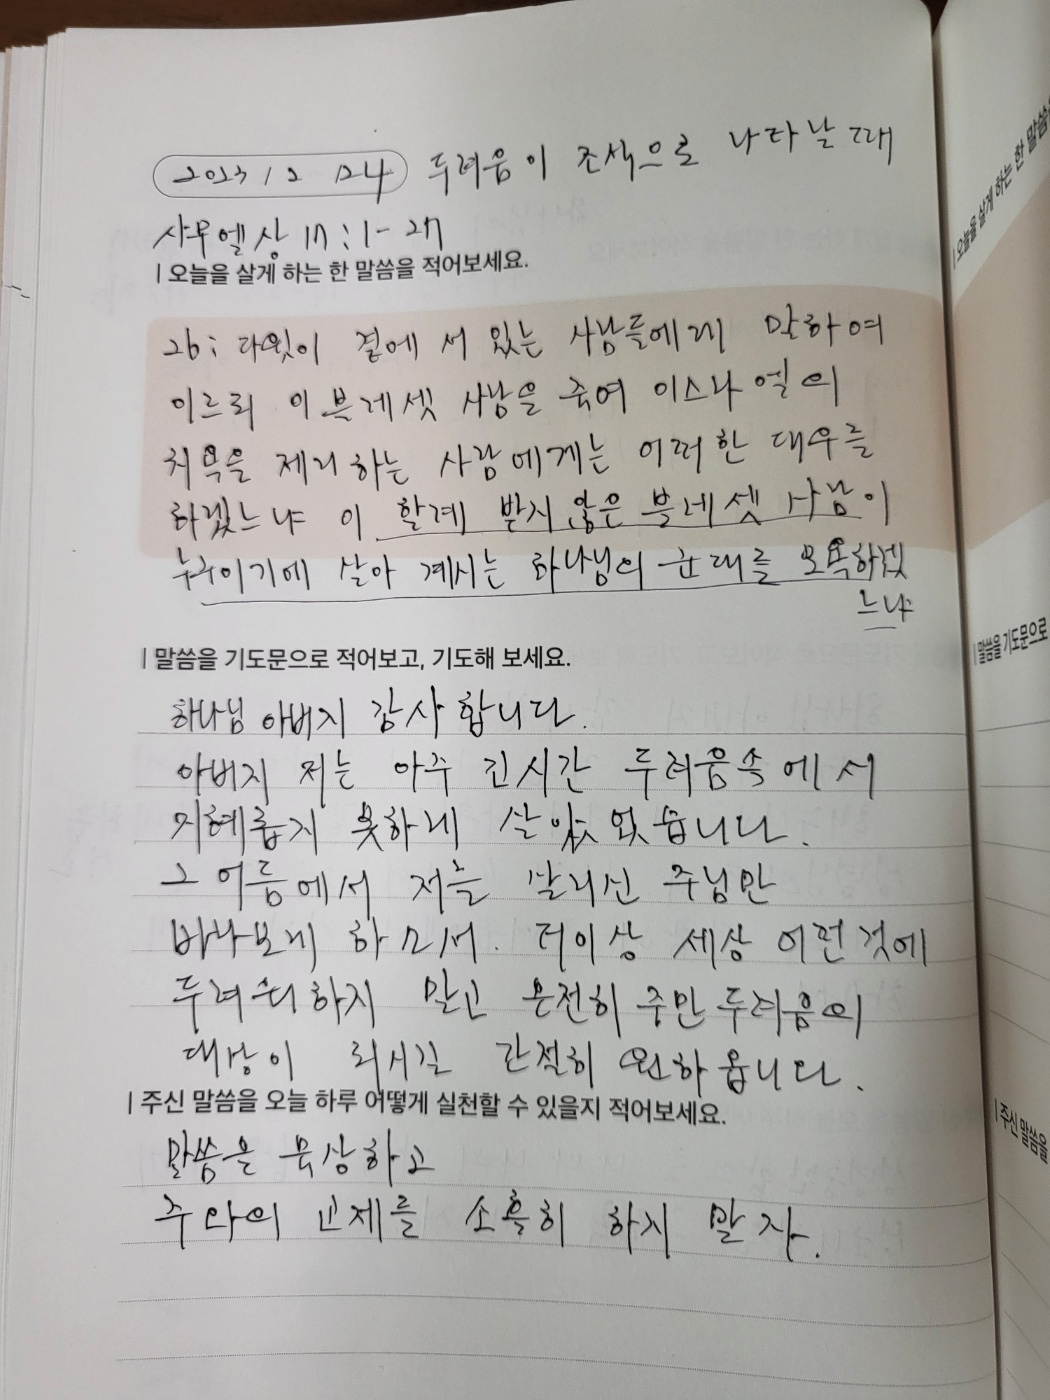 2023 12 24 두려움이 조석으로 나타날 때
사무엘상 17:1-27
| 오늘을 살게 하는 한 말씀을 적어보세요.
26: 다윗이 곁에 서 있는 사람들에게 말하여
이르되 이 블레셋 사람을 죽여 이스라엘의
치욕을 제거하는 사람에게는 어떠한 대우를
하겠느냐 이 할례 받지 않은 블레셋 사람이
누구이기에 살아 계시는 하나님의 군대를 모욕하겠
느냐
| 말씀을 기도문으로 적어보고, 기도해 보세요.
하나님 아버지 감사합니다.
아버지 저는 아주 긴시간 두려움속에서
지혜롭지 못하게 살았었습니다.
그 어둠에서 저를 살리신 주님만
바라보게 하소서. 더이상 세상 어떤것에
두려워하지 말고 온전히 주만 두려움의
대상이 되시길 간절히 원하옵니다.
| 주신 말씀을 오늘 하루 어떻게 실천할 수 있을지 적어보세요.
말씀을 묵상하고
주와의 교제를 소홀히 하지 말자.
| 오늘을 살게 하는 한 말씀을
| 말씀을 기도문으로
| 주신 말씀을